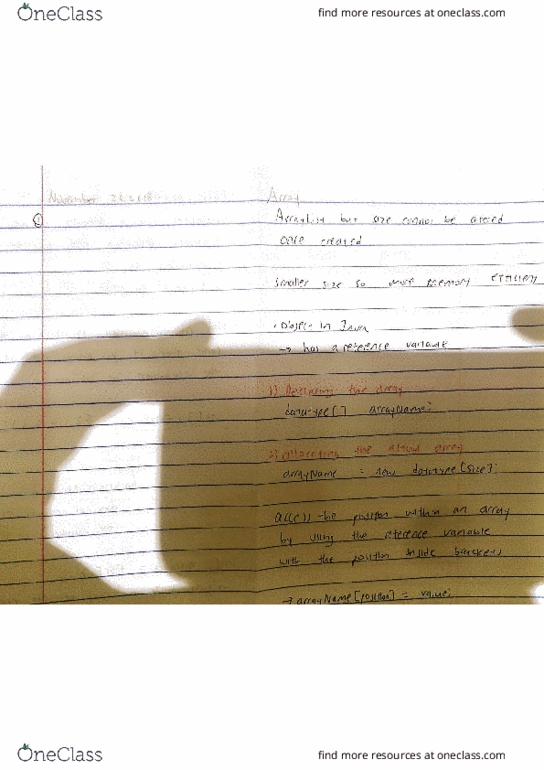 OneClass
find more resources at oneclass.com
November 26 2018
Array
ArrayList but size cannot be altered
once created
smaller size so more memory efficiency
• Object in Java
→ has a reference variable
1) Declaring the array
datatype[] arrayName;
2) allocating the actual array
arrayName = new datatype[size];
access the position within an array
by using the reference variable
with the position inside brackets
→ arrayName[position] = value;
OneClass
find more resources at oneclass.com